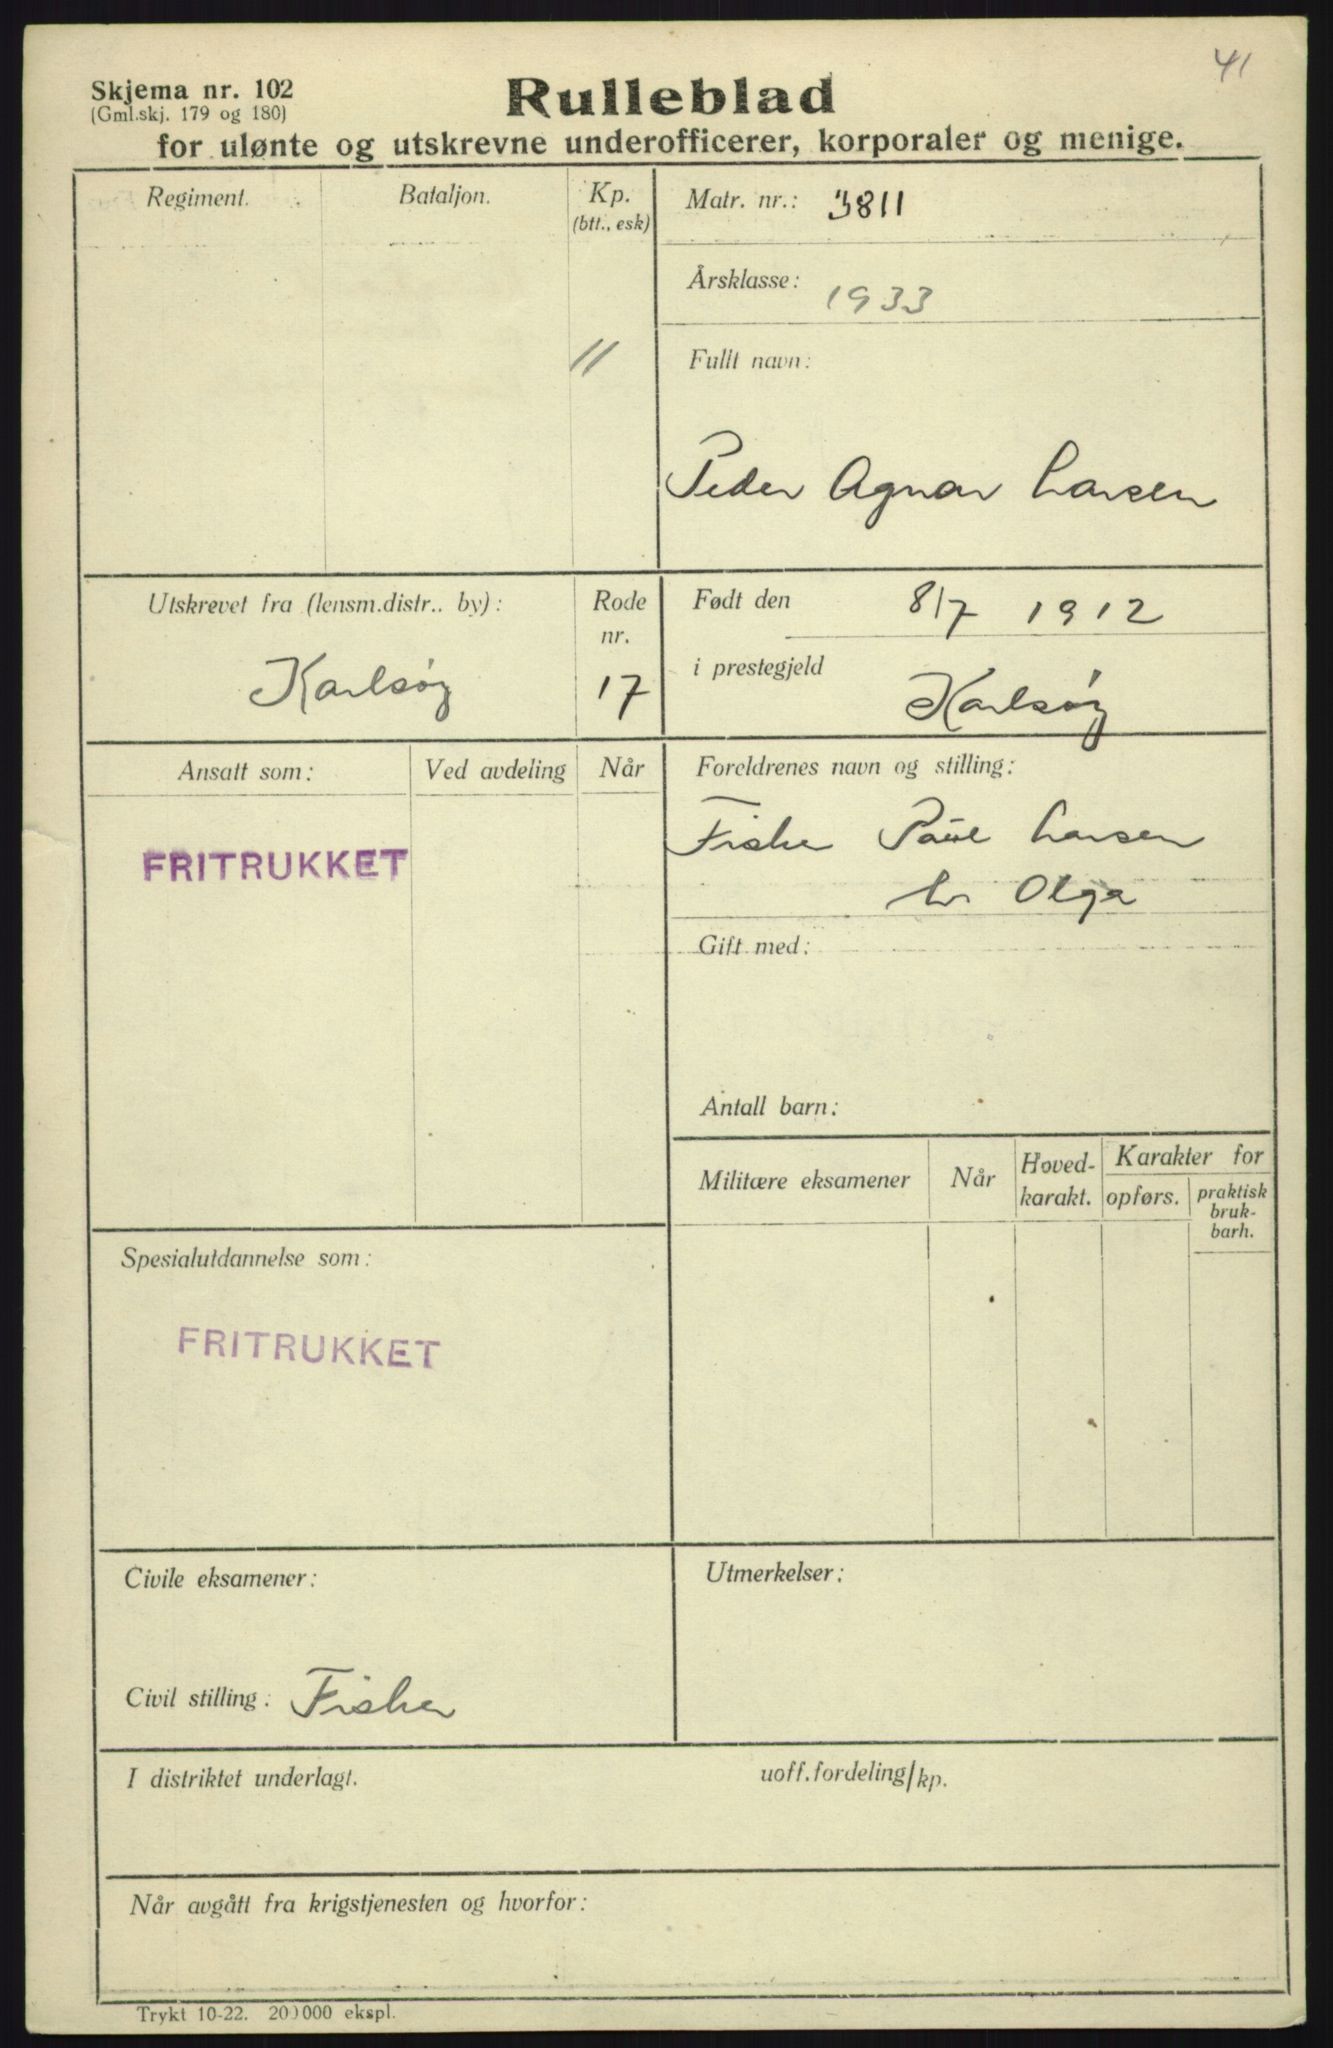 41
Skjema nr. 102
(Gml.skj. 179 og 180)
Rulleblad
for ulønte og utskrevne underofficerer, korporaler og menige.
Regiment.
Bataljon.
Kp.
(btt., esk)
11
Matr. nr.: 3811
Årsklasse: 1933
Fullt navn:
Peder Agnar Larsen
Utskrevet fra (lensm.distr.. by):
Karlsøy
Rode
nr.
17
Født den 8/7 1912
i prestegjeld Karlsøy
Ansatt som:
Ved avdeling
Når
FRITRUKKET
Foreldrenes navn og stilling:
Fisker Paul Larsen
Olga
Gift med:
Antall barn:
Militære eksamener
Når
Hoved-
karakt.
Karakter for
opførs.
praktisk
bruk-
barh.
Spesialutdannelse som:
FRITRUKKET
Civile eksamener:
Civil stilling: Fisker
Utmerkelser:
I distriktet underlagt.
uoff.fordeling/kp.
Når avgått fra krigstjenesten og hvorfor:
Trykt 10-22. 200000 ekspl.